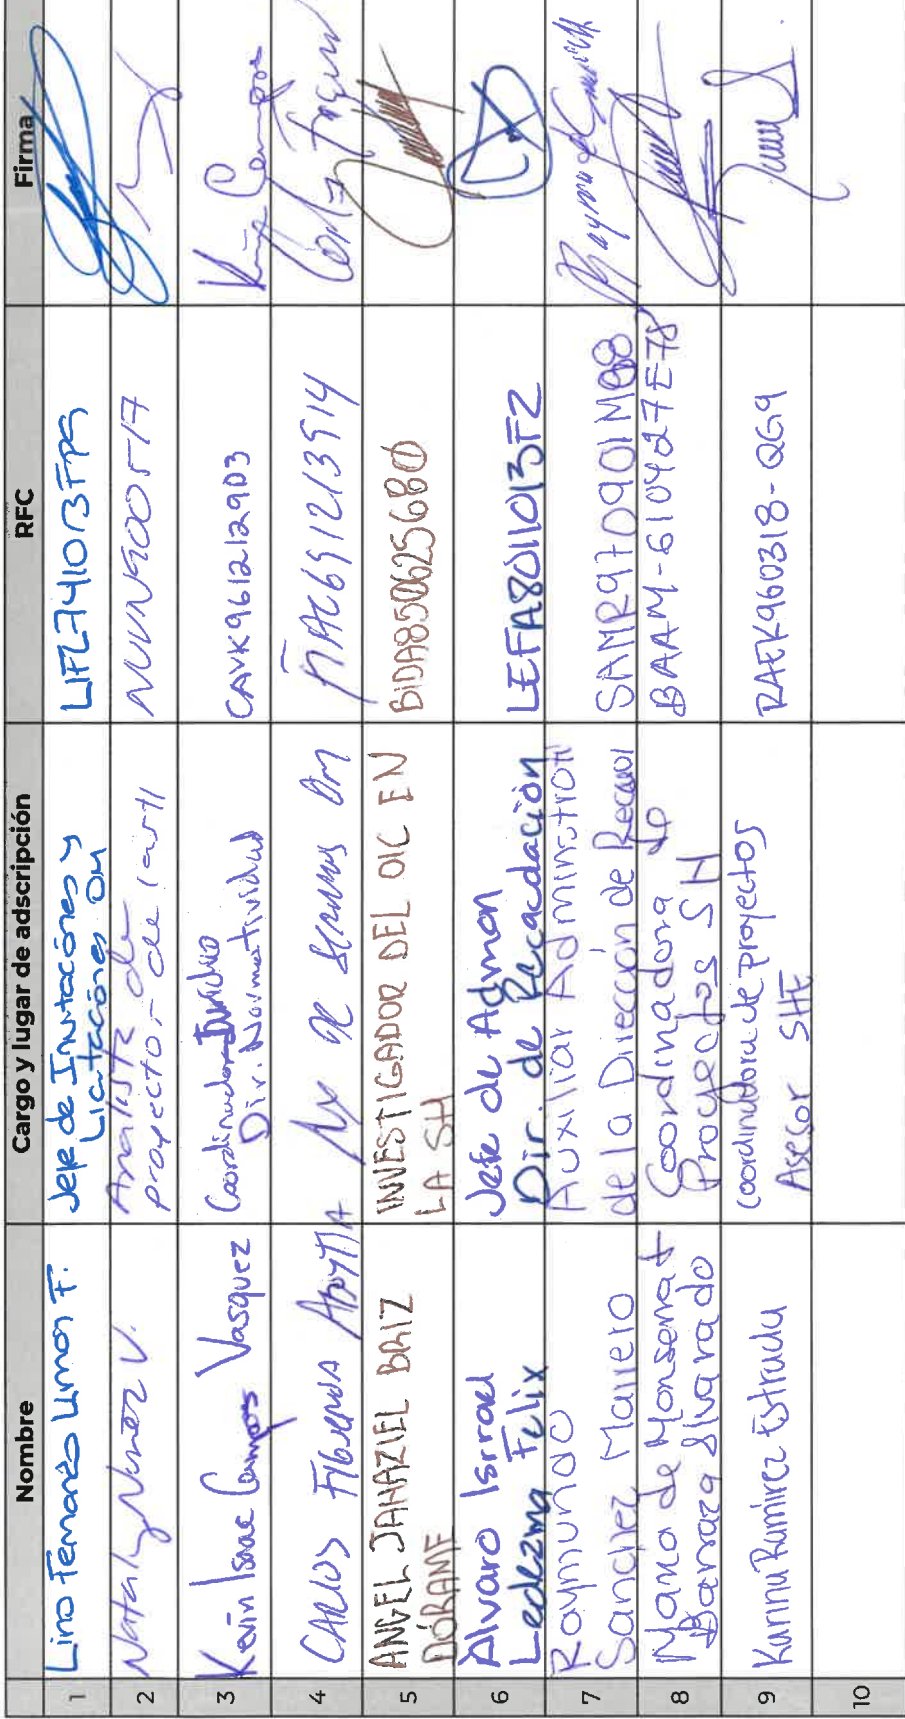 Nombre
Cargo y lugar de adscripción
RFC
Firma
1
Lino Fernando Limon F.
Jefe de Invitaciónes y
Licitaciones OM
LIFL741013FP9
2
Nataly Nuñez V.
Analista de
proyectos de
3
Kevin Isaac Campos Vasquez
Coordinador Jurídico
Dir. Normatividad
CAVK9612129D3
Kevin Campos
4
CARLOS FIGUEROA
OM
5
ANGEL JAHAZIEL BRIZ
DÓRAME
INVESTIGADOR DEL OIC EN
LA SH
BIDA850625680
6
Alvaro Isrrael
Ledezma Felix
Jefe de Admon
Dir. de Recacdación
LEFA801013FZ
7
Raymundo
Sanchez Marrero
Auxiliar Administrativ
de la Dirección de Recaud
SAMR970901M88
8
Maria de Monserrat
Barraza Alvarado
Coordinadora de
Proyectos SH
BAAM-610427E78
9
Karina Ramirez Estrada
coordinadora de proyectos
Asesor SHE
RAEK960318-QG9
10